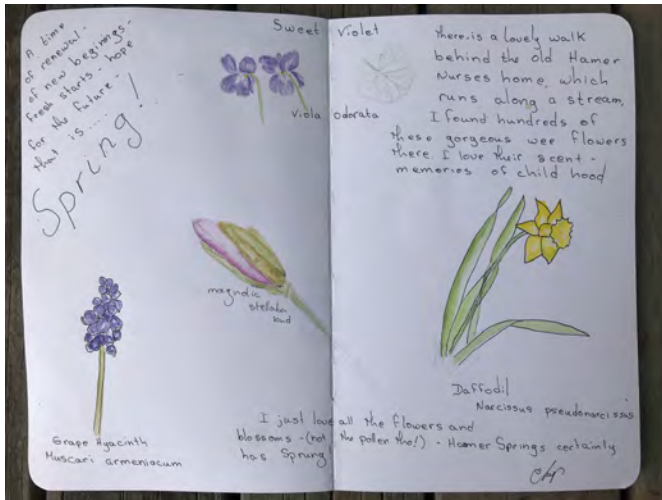 A time
of renewal -
of new beginings -
fresh starts - hope
for the future -
that is .....
Spring!
Sweet Violet
Viola odorata
there is a lovely walk
behind the old Hamer
Nurses home, which
runs along a stream,
I found hundreds of
these gorgeous wee flowers
there. I love their scent -
memories of child hood
magnolic
stellata
bud
Grape Hyacinth
Muscari armeniacum
Daffodil
Narcissus pseudonarcissus
I just love all the flowers and
blossoms - (not the pollen tho!) - Hanmer Springs certainly
has Sprung